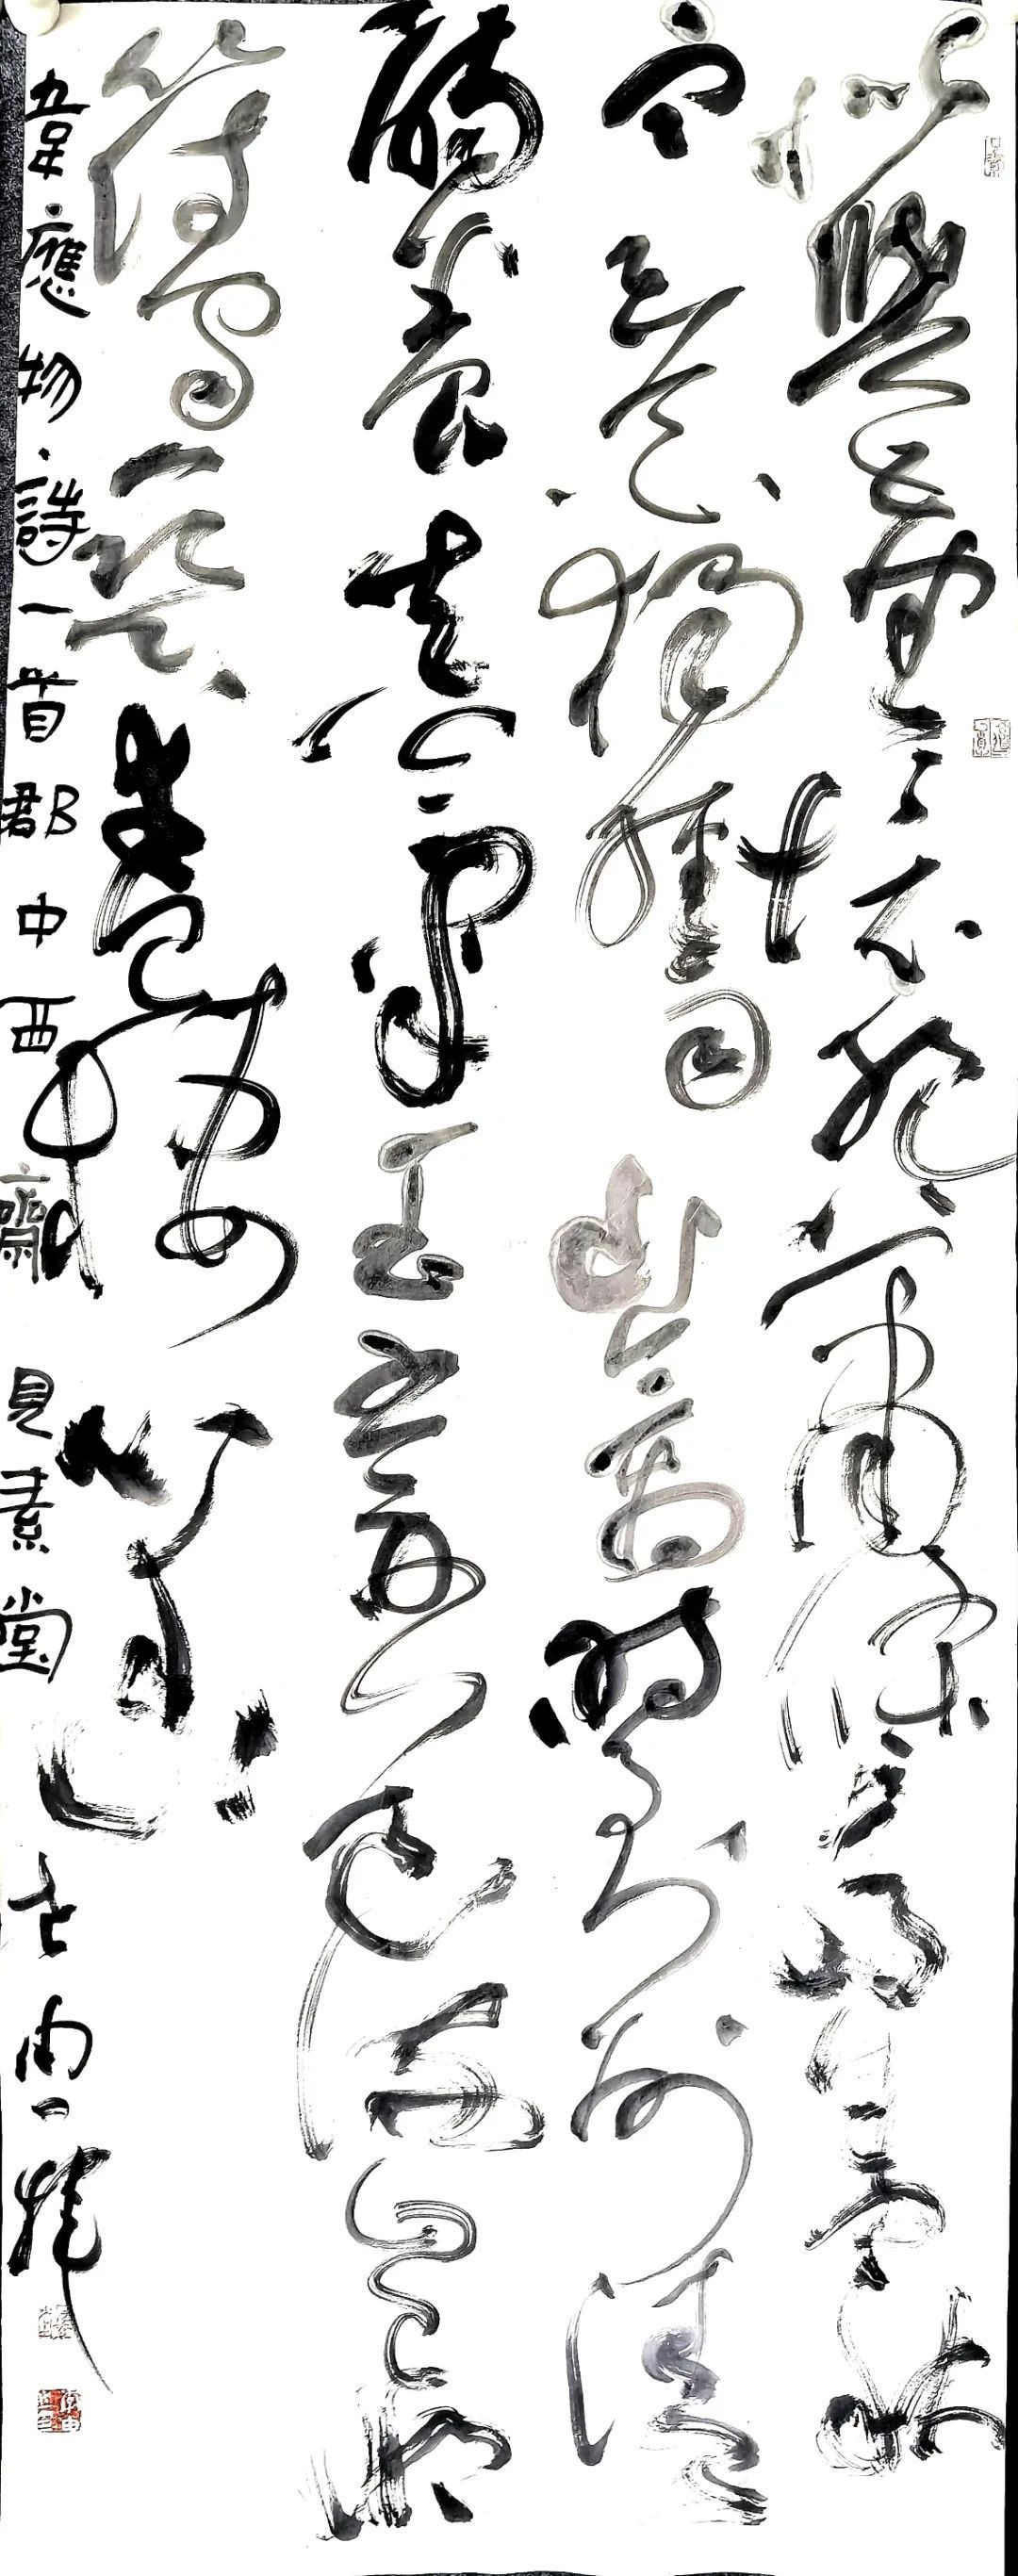 似與塵境絕蕭條齋舍秋
寒花獨經雨山禽時到州清
觴養真氣玉書示道流豈將
符守戀幸已棲心幽
韋應物·詩一首郡中西齋 見素堂